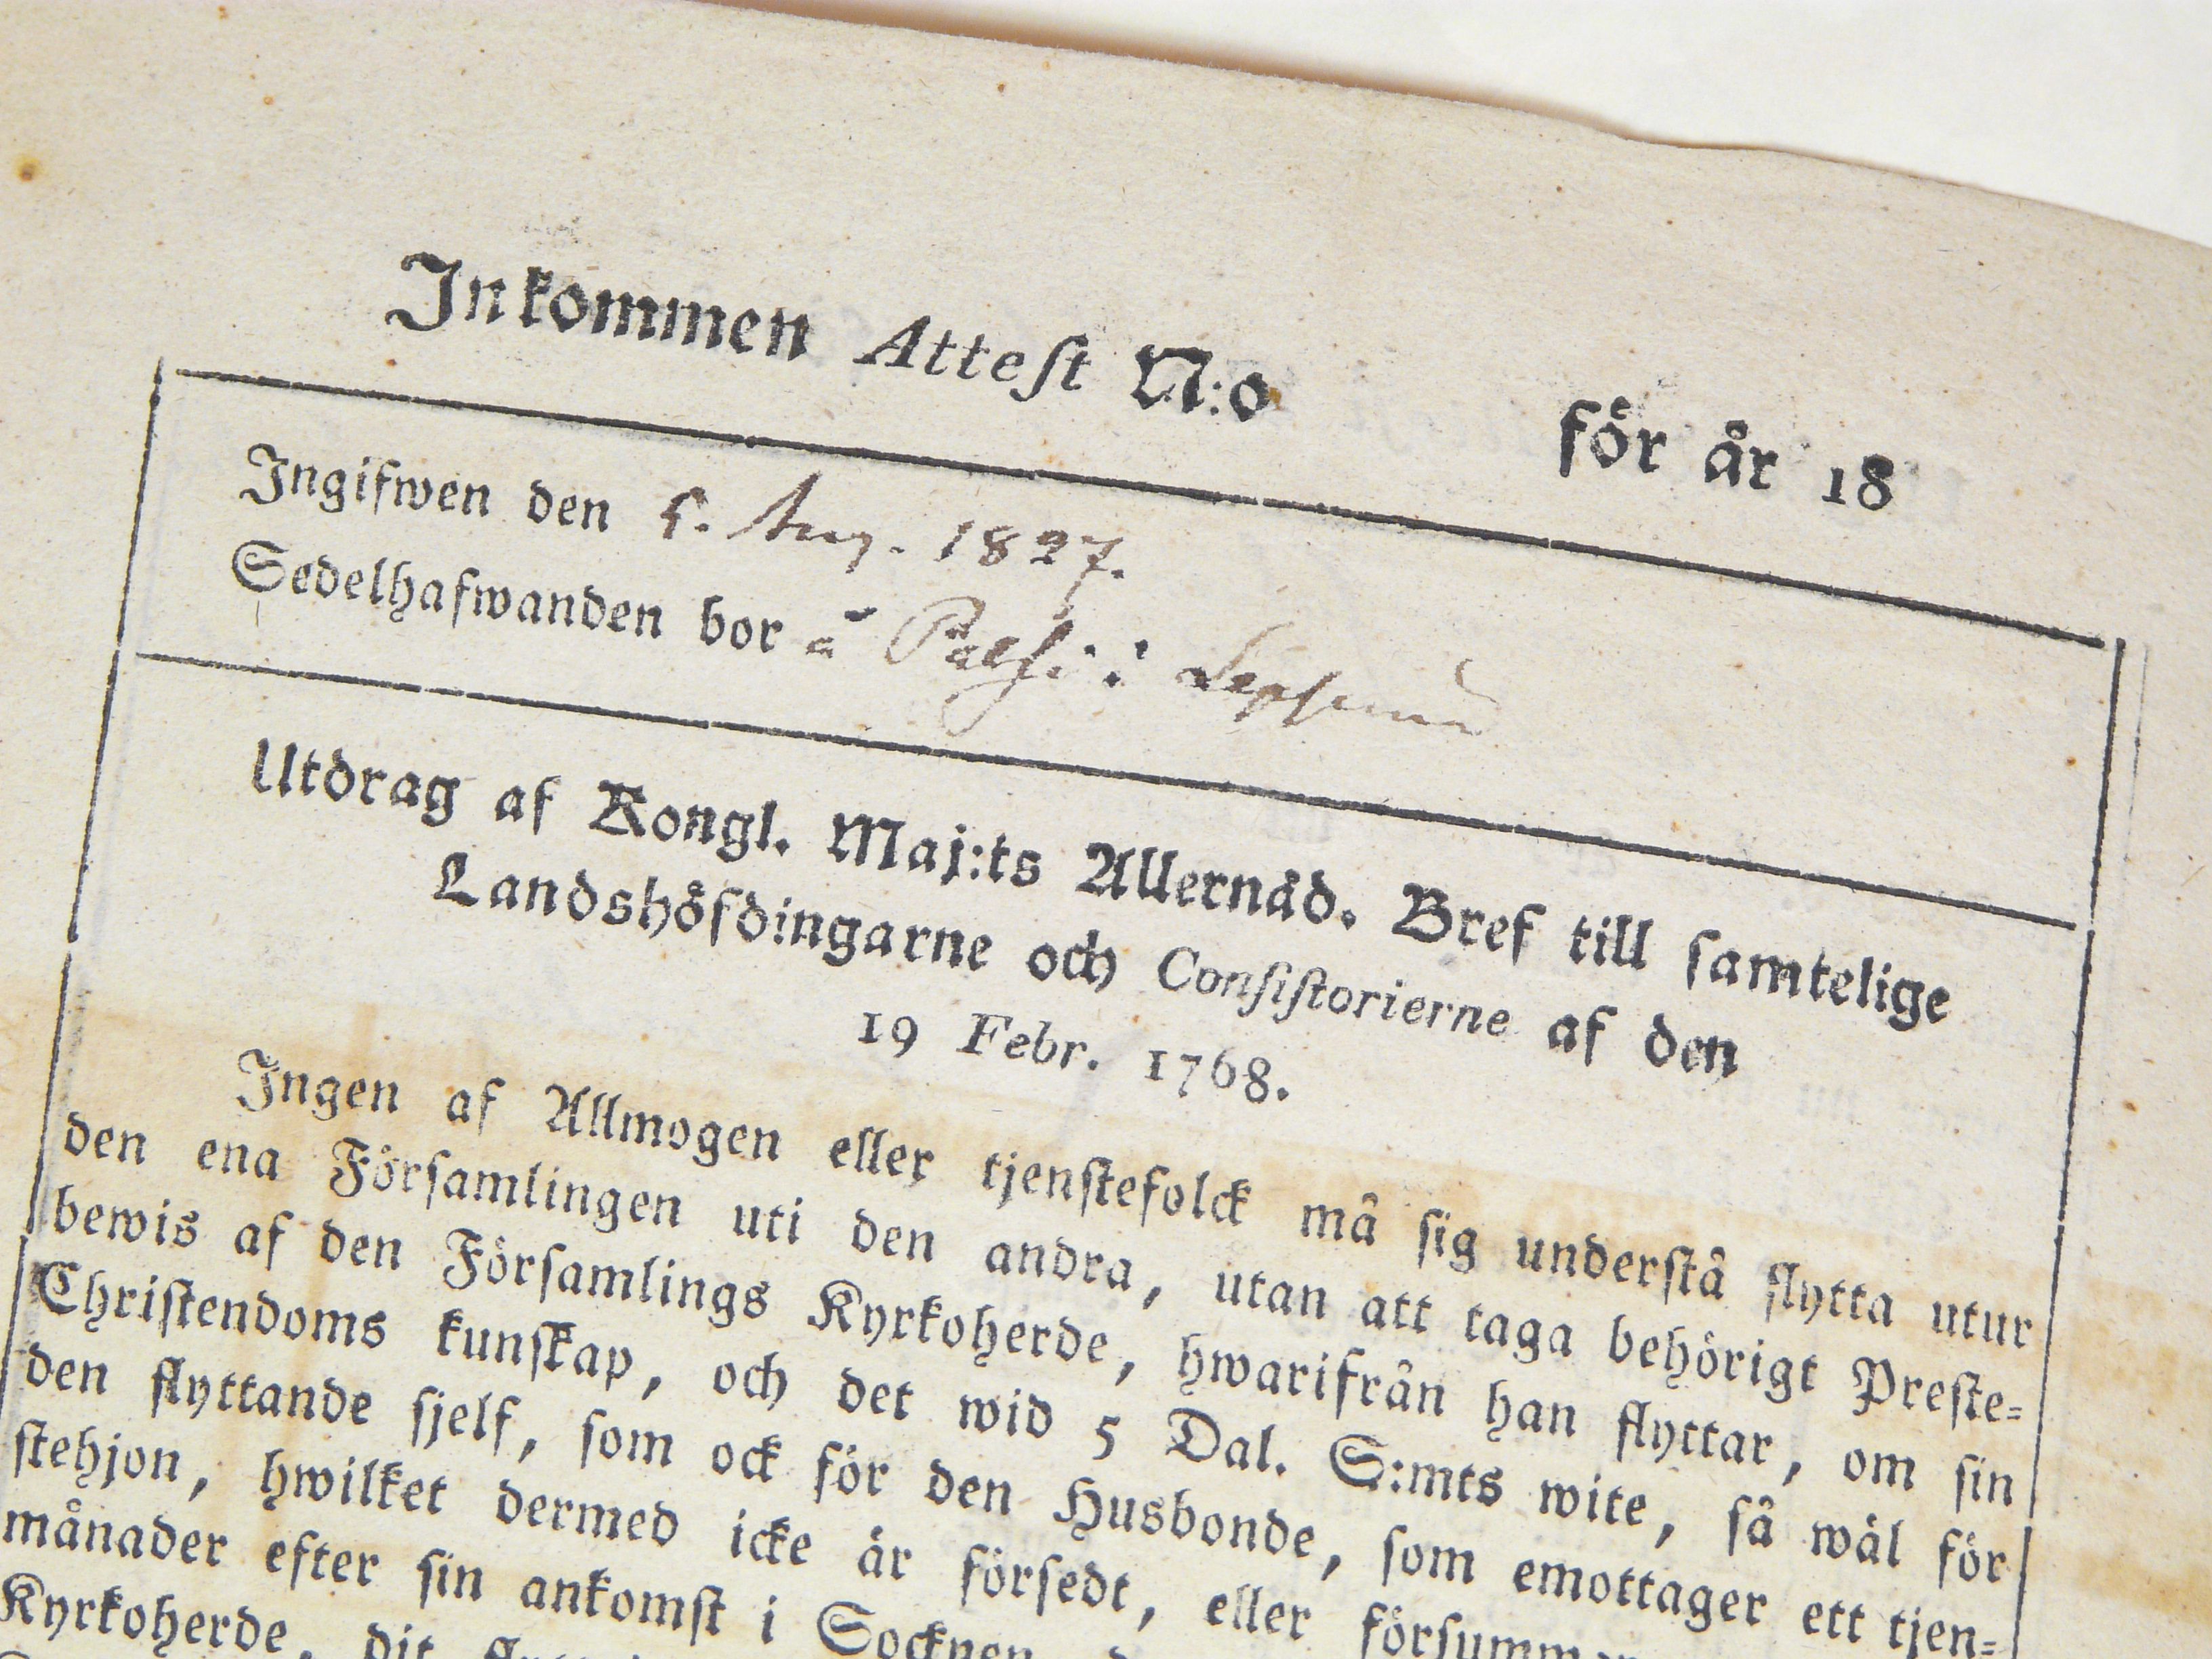 Inkommen Attest N:o för år 18
Ingifwen den 5. Aug. 1827.
Sedelhafwanden bor å
Utdrag af Kongl. Maj:ts Allernåd. Bref till samtelige
Landshöfdingarne och Consistorierne af den
19 Febr. 1768.
Ingen af Allmogen eller tjenstefolck må sig understå flytta utur
den ena Församlingen uti den andra, utan att taga behörigt Preste=
bewis af den Församlings Kyrkoherde, hwarifrån han flyttar, om sin
Christendoms kunskap, och det wid 5 Dal. S:mts wite, så wäl för
den flyttande sjelf, som ock för den Husbonde, som emottager ett tjen=
stehjon, hwilket dermed icke är försedt, eller
månader efter sin ankomst i Socknen
Kyrkoherde, dit